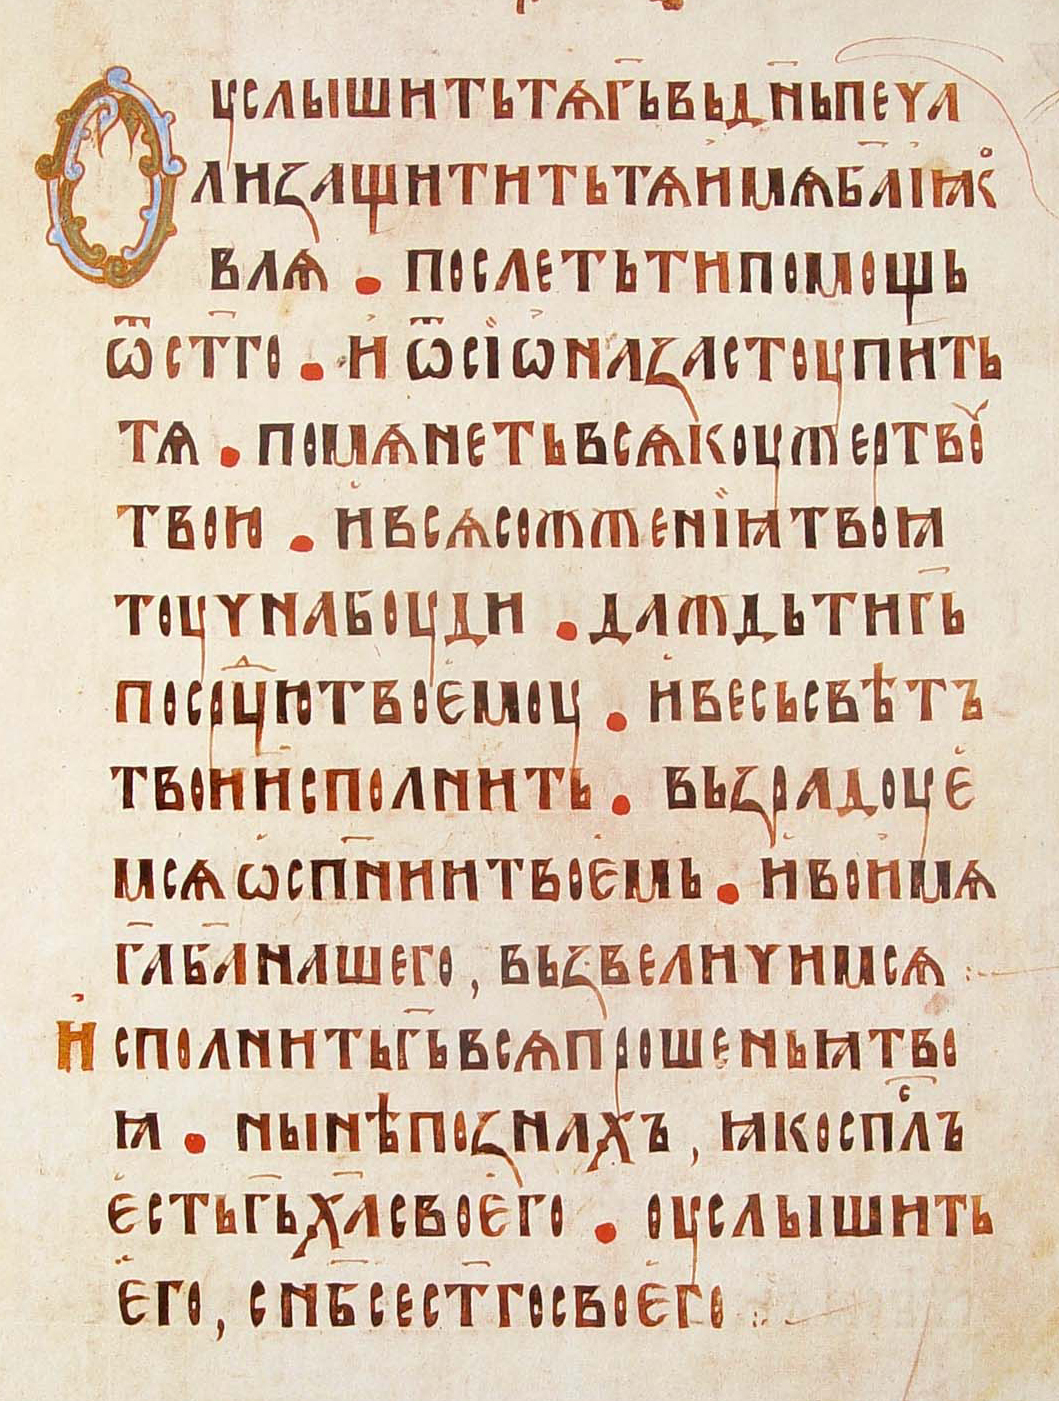 Оуслышитьтѧг҃ьвьдн҃ьпеча
лизащититьтѧи҆мѧба҃іꙗ҆ко
влѧ · послетьтипомощь
ѿст҃го · и҆ѿсїѡ҆назастоупить
тѧ · помѧнетьвсѧкоужертвоу
твою · и҆всѧсожженїꙗтвоꙗ
тоучнабоуди · дамждьтиг҃ь
посрⷣцютвоємоу · и҆весьсвѣтъ
твоиисполнить · вьзрадоуе҆
мсѧѡ҆сп҃ниитвоемь · и҆вои҆мѧ
г҃аба҃нашего, вьзвеличимсѧ :
И҆сполнитьг҃ьвсѧпрошеньꙗтво
ꙗ · нынѣпознахъ, ꙗкоспⷭ҇лъ
е҆стьг҃ьха҃свое҆го · оуслышить
е҆го, снб҃сест҃госвое҆го :